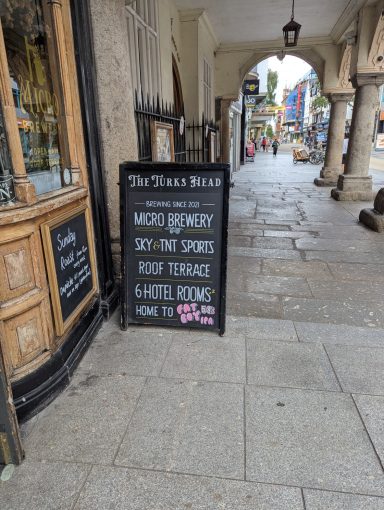 THE TURKS HEAD
BREWING SINCE 2021
MICRO BREWERY
SKY & TNT SPORTS
ROOF TERRACE
6 HOTEL ROOMS
HOME TO FAT BOY IPA
Sunday
Roast